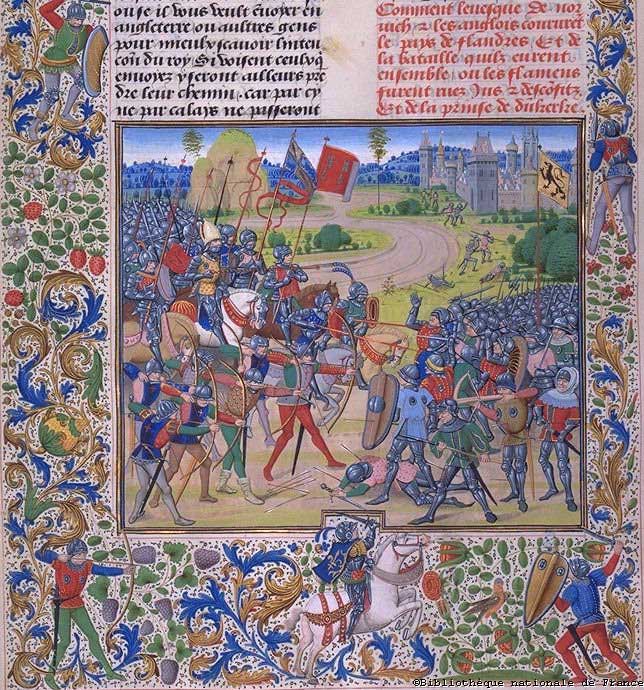 ou se il vous veult envoyer en
angleterre ou aultres gens
pour mieulx scavoir linten
cōn du roy Si voisent ceulx q̄
envoyez y seront ailleurs pre
dre leur chemin, car par cy
ne par calays ne passeront
Comment levesque de nor
wich & les anglois coururēt
le pays de flandres, Et de
la bataille quilz eurent
ensemble, ou les flamens
furent ruez Jus & descōfitz
Et de la prinse de dūkerke,
©Bibliothèque nationale de France